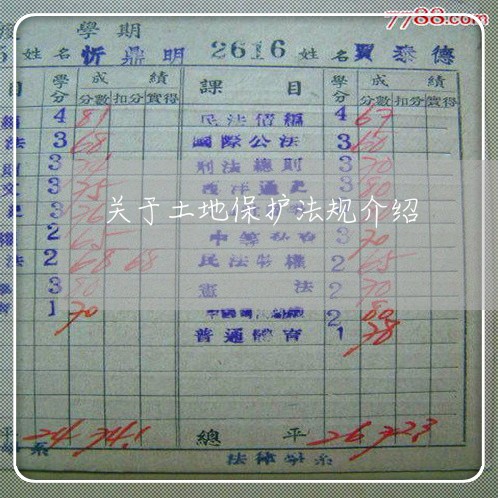 7788.com
學期
姓名 忻鼎明 2616 姓名 賈泰德
目 學分 成績 分數 扣分 實得 課目 學分 成績 分數 扣分 實得
4 81 民法債編 4 67
法 3 68 國際公法 3 60
3 刑法總則 3 70
3 75 西洋通史 3 80
3
关于土地保护法规介绍
2 65 3 70
法 2 68 68 民法物權 2 65
3 80 憲法 2 70
1 70 2 80
普通體育 1 78
平 24 74.1 總平 26 72.3
系 法律學系